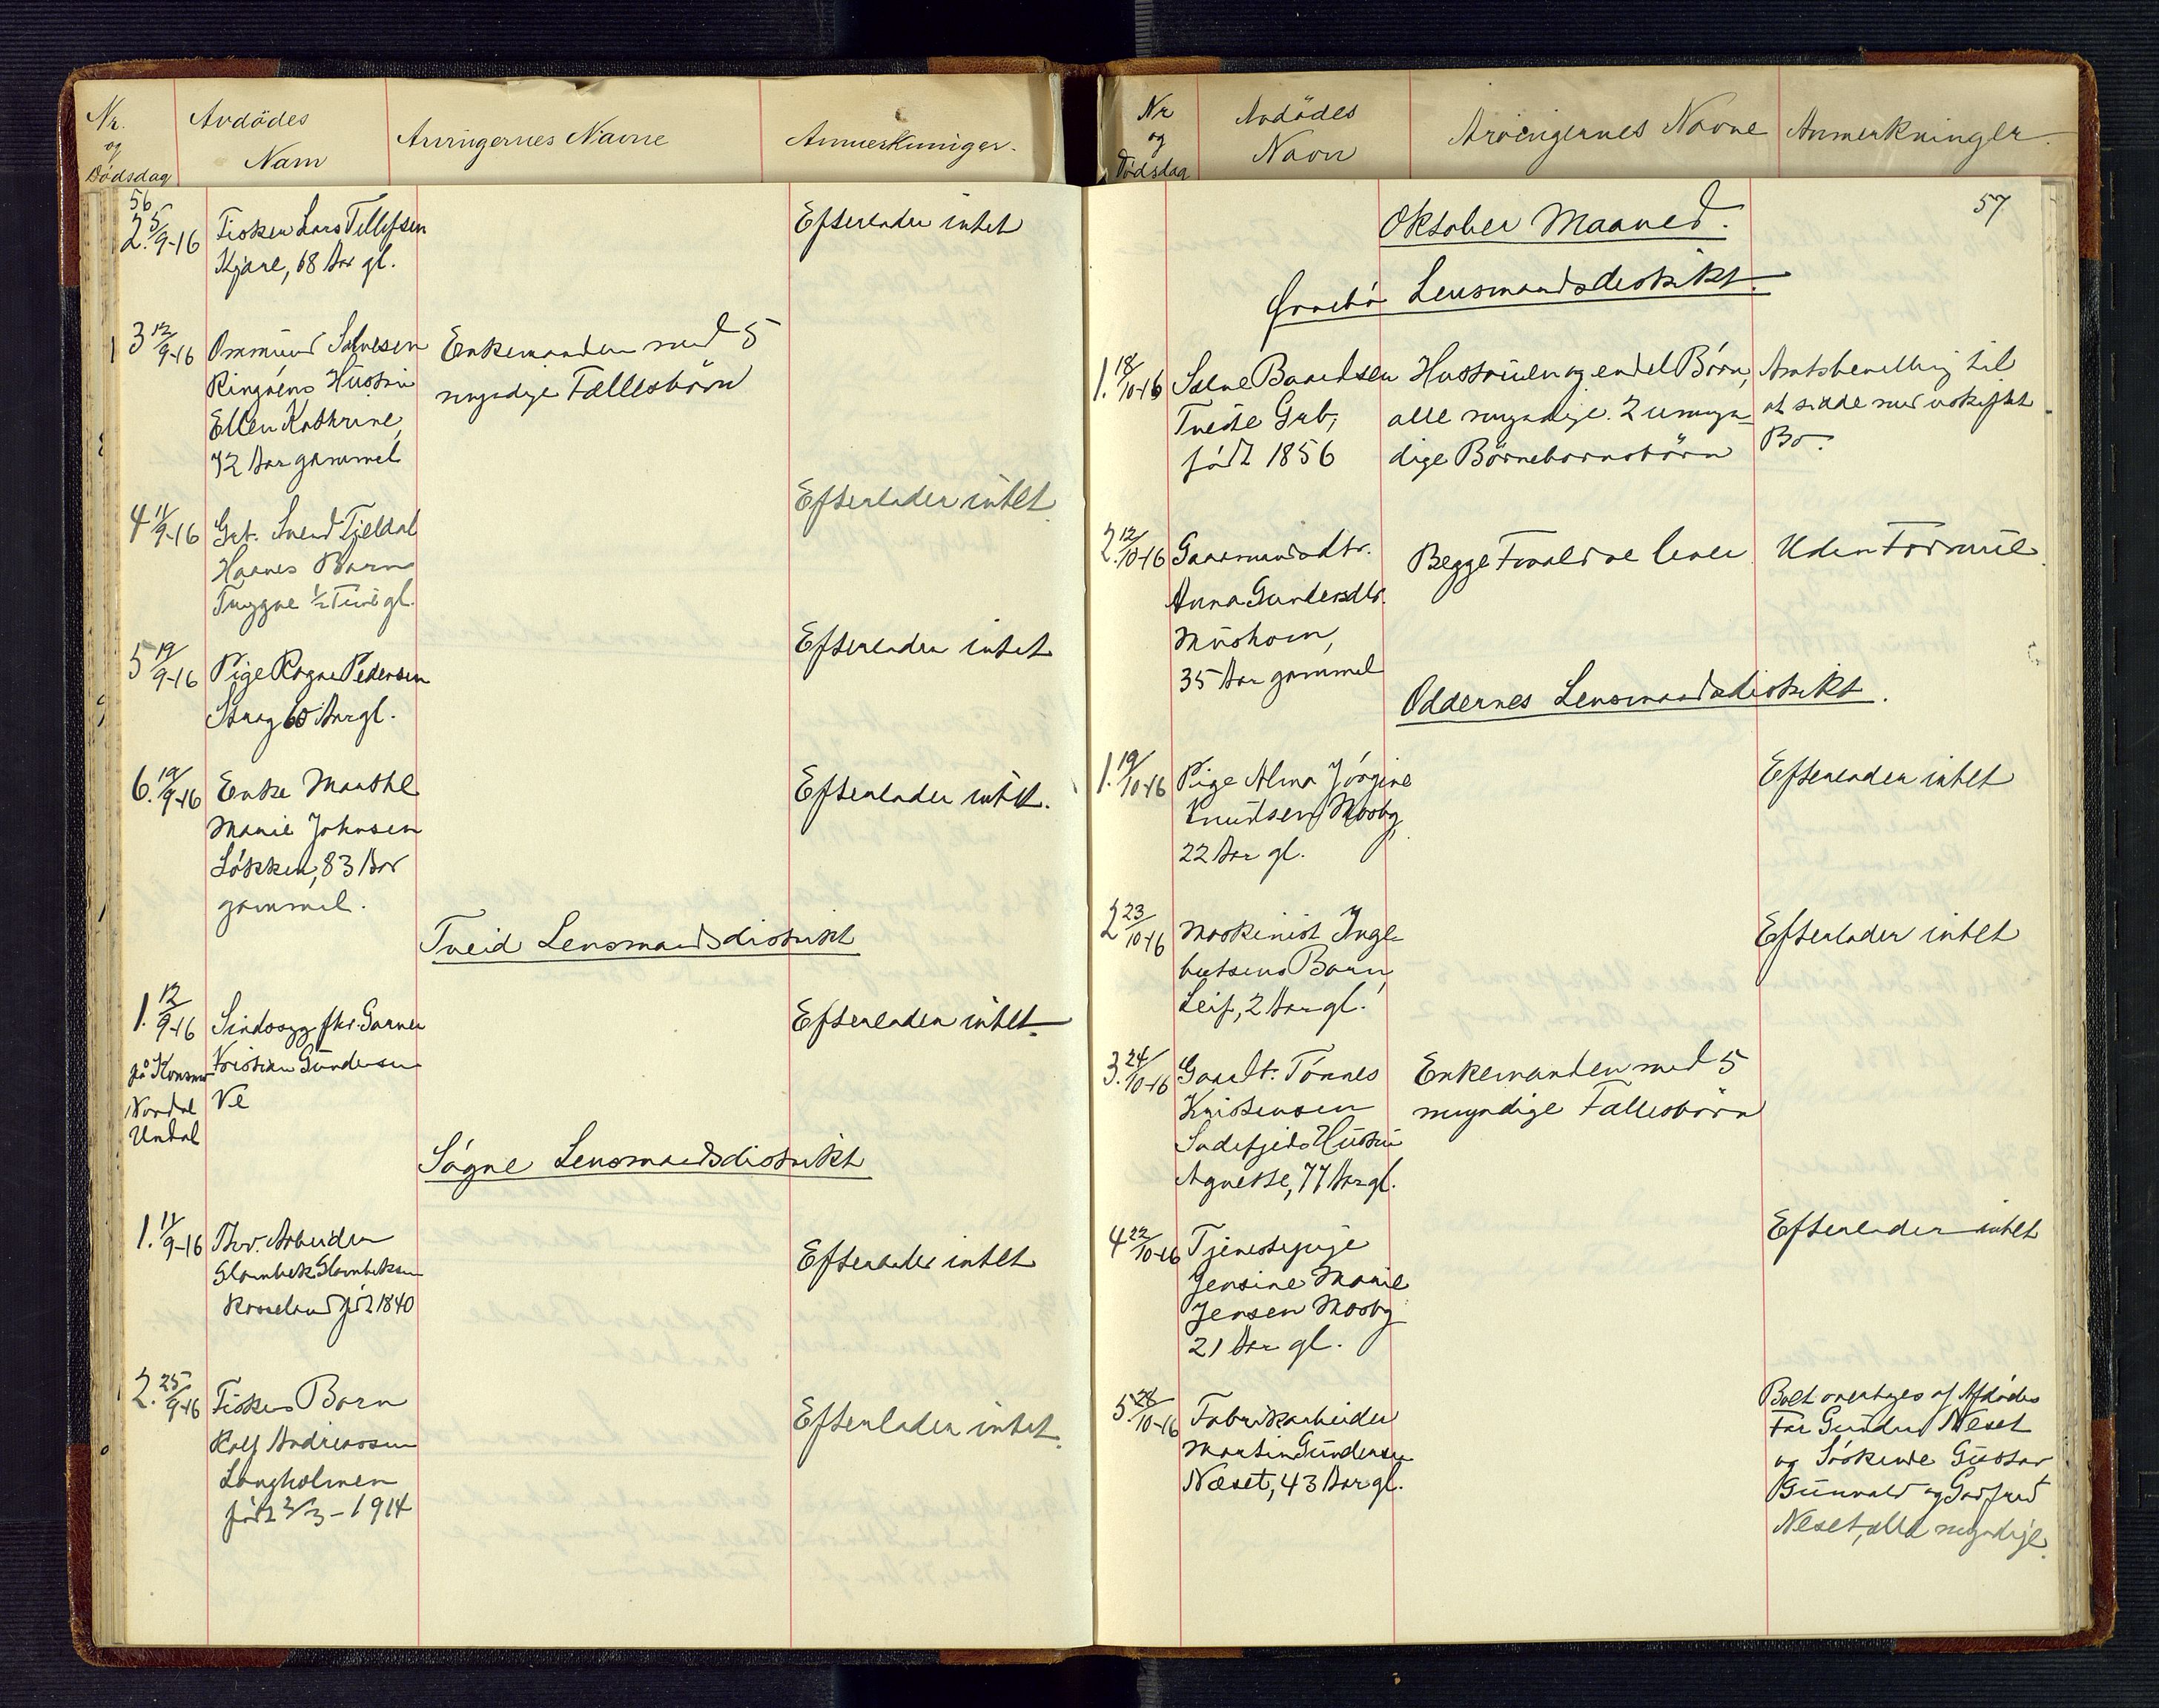 Nr.
og
Dödsdag
Avdödes
Navn
Arvingernes Navne
Anmerkninger.
56
2. 5/9-16 Fisker Lars Tellefsen
Kjære, 68 Aar gl.
Efterlader intet
3 12/9-16 Ommund Salvesen
Ringøens Hustru
Ellen Kathrine,
72 Aar gammel
Enkemanden med 5
myndige Fællesbörn
4 11/9-16 Grb. Svend Tjeldal
Haanes Barn
Trygve ½ Time gl.
Efterlader intet
5 19/9-16 Pige Ragne Pedersen
Stray 60 Aar gl.
Efterlader intet
6. 19/9-16 Enke Marthe
Marie Johnsen
Løkken, 83 Aar
gammel.
Efterlader intet.
Tveid Lensmandsdistrikt
1. 12/9-16
på Konsmo
Nordre
Undal
Sindssyg fhv. Garver
Kristian Gundersen
Ve
Efterlader intet
Søgne Lensmandsdistrikt
1. 11/9-16 Fhv. Arbeider
Glambek Glambeksen
Rosseland född 1840
Efterlader intet
2. 25/9-16 Fiskers Barn
Rolf Andreassen
Langholmen
född 2/3-1914
Efterlader intet.
Nr
og
Dödsdag
Avdödes
Navn
Arvingernes Navne
Anmerkninger.
57
Oktober Maaned.
Grnebø Lensmandsdistrikt.
1. 18/10-16 Salve Baardsen
Tveite Grb,
född 1856
Hustruen og endel Börn,
alle myndige. 2 umyn-
dige Börnebarnsbörn
Amtsbevilling til
at sidde med uskiftet
Bo.
2. 12/10-16 Gaarmandsdtr.
Anna Gundersdtr.
Mushom,
35 Aar gammel
Begge Forældre lever
Uden Formue.
Oddernes Lensmandsdistrikt.
1. 19/10-16 Pige Alma Jørgine
Knudsen Mosby,
22 Aar gl.
Efterlader intet
2 23/10-16 Maskinist Inge-
bretsens Barn,
Leif, 2 Aar gl.
Efterlader intet
3. 24/10-16 Gaardb. Tønnes
Kristensen
Sødefjeds Hustru
Agnethe, 77 Aar gl.
Enkemanden med 5
myndige Fællesbörn
4 22/10-16 Tjenestepige
Jensine Marie
Jensen Mosby
21 Aar gl.
Efterlader intet
5. 28/10-16 Fabrikarbeider
Martin Gundersen
Næset, 43 Aar gl.
Boet overtages af Afdødes
Far Gunder Neset
og Søskende Gustav,
Gunvald og Godfred
Neset, alle myndige.